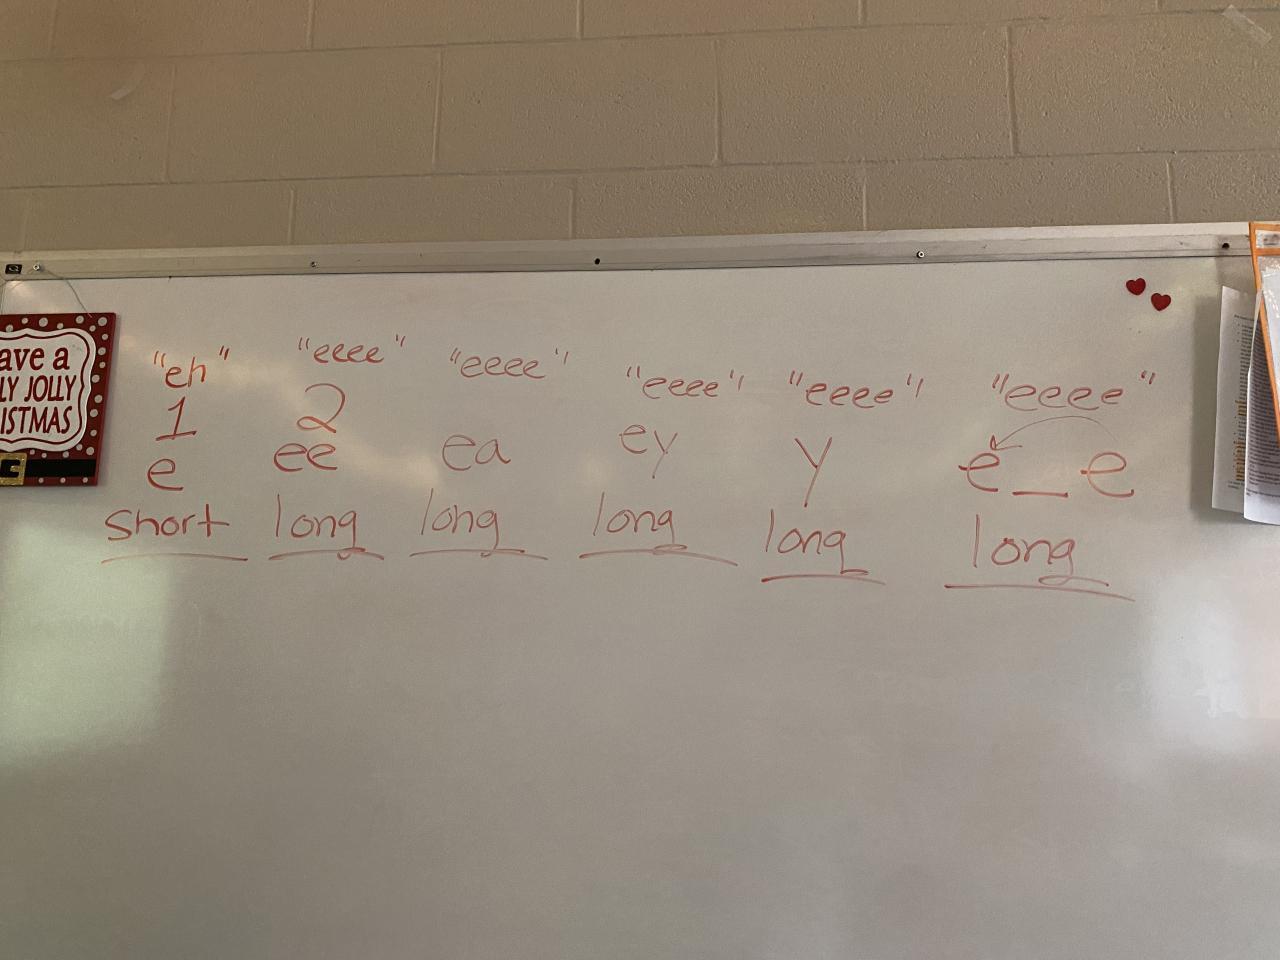 "eh" "eeee" "eeee" "eeee" "eeee" "eeee"
1 2
e ee ea ey y e_e
short long long long long long
ave a
LY JOLLY
ISTMAS